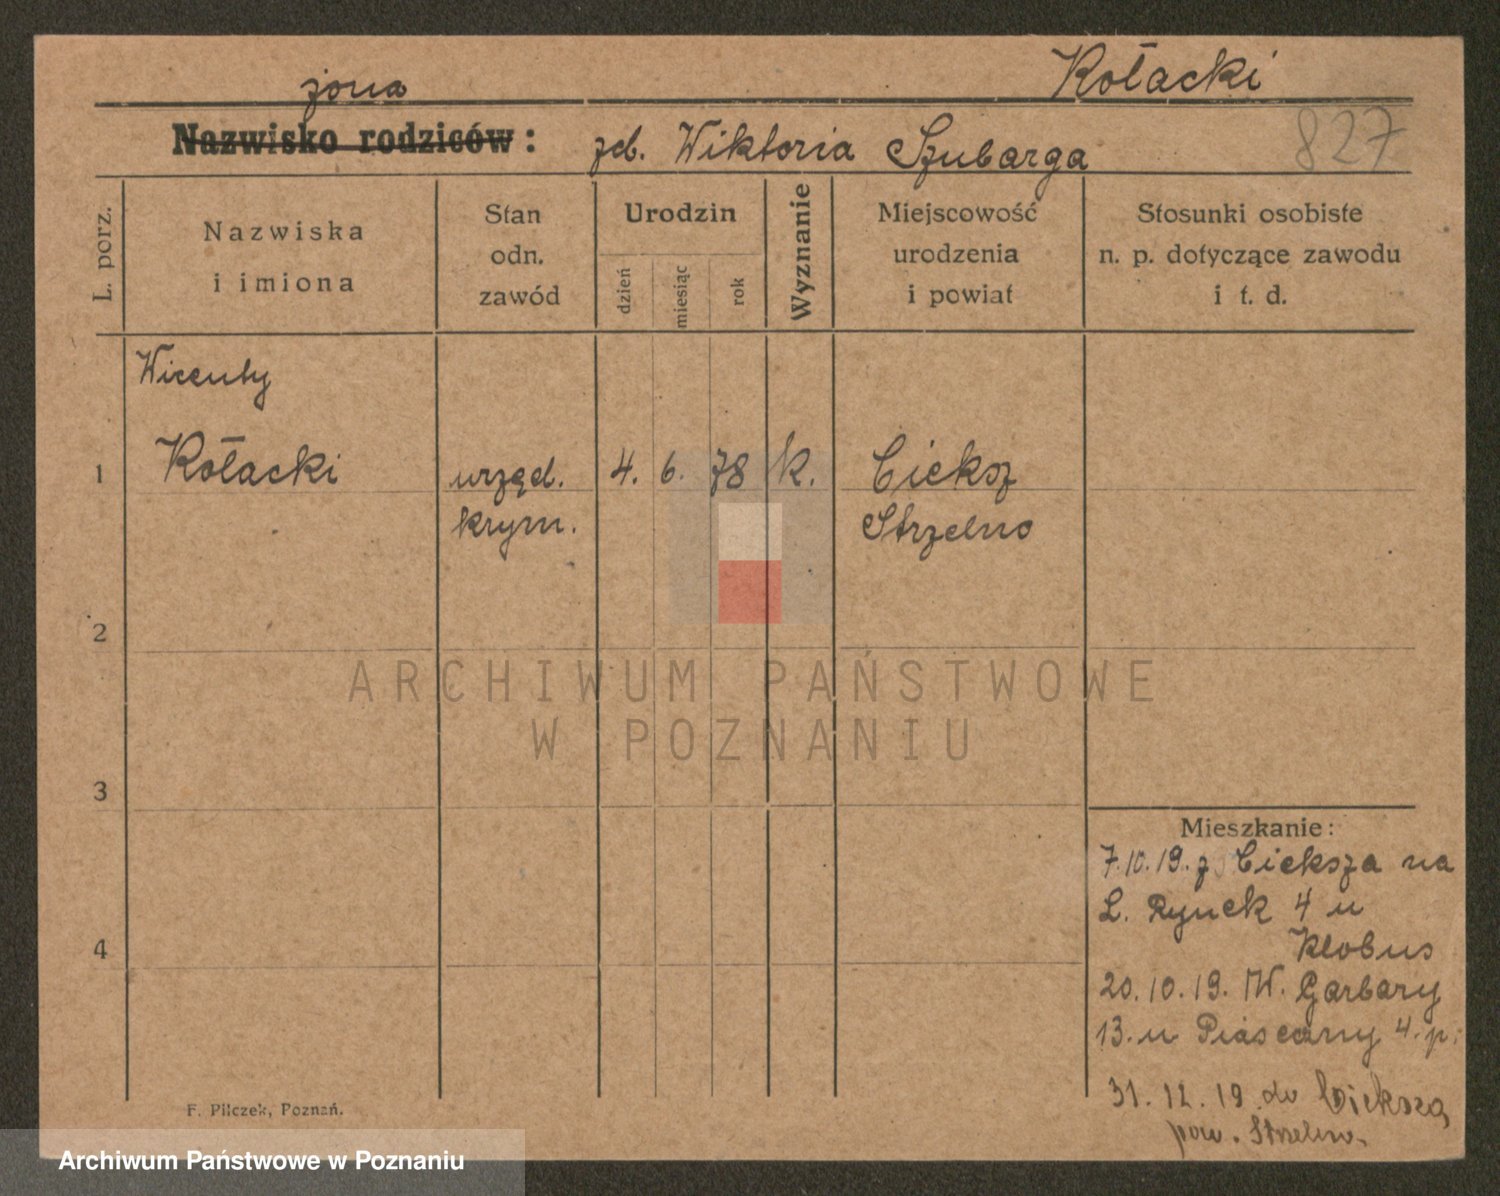 Kołacki
żona
Nazwisko rodziców :
zd. Wiktoria Szubarga
827
L. porz.
Nazwiska
i imiona
Stan
odn.
zawód
Urodzin
dzień
miesiąc
rok
Wyznanie
Miejscowość
urodzenia
i powiat
Stosunki osobiste
n. p. dotyczące zawodu
i t. d.
Wicenty
1 Kołacki urzęd. 4. 6. 78 k. Cieksz
krym. Strzelno
2
3
4
Mieszkanie:
7.10.19. z Cieksza na
Ł. Rynek 4 u
Klobus
20.10.19. W. Garbary
13. u Piaseczny 4. p.
31. 12. 19 do Cieksza,
pow. Strzelno.
F. Pilczek, Poznań.
ARCHIWUM PAŃSTWOWE
W POZNANIU
Archiwum Państwowe w Poznaniu